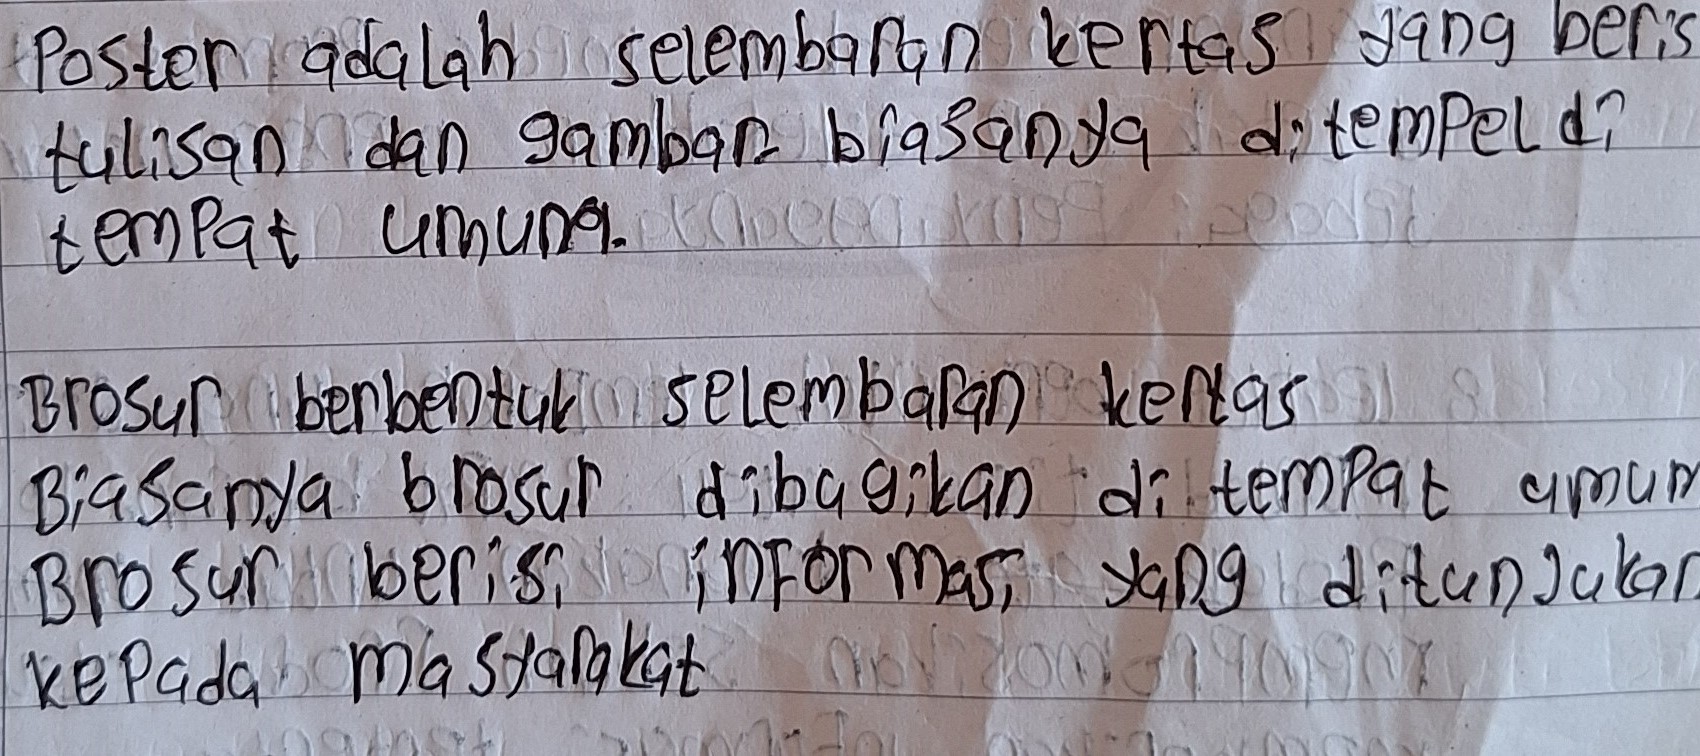 Poster adalah selembaran kertas yang beris
tulisan dan gambar biasanya ditempel di
tempat umum.
Brosur berbentuk selembaran kertas
Biasanya brosur dibagikan di tempat umum
Brosur berisi informasi yang ditunjukan
kepada masyarakat